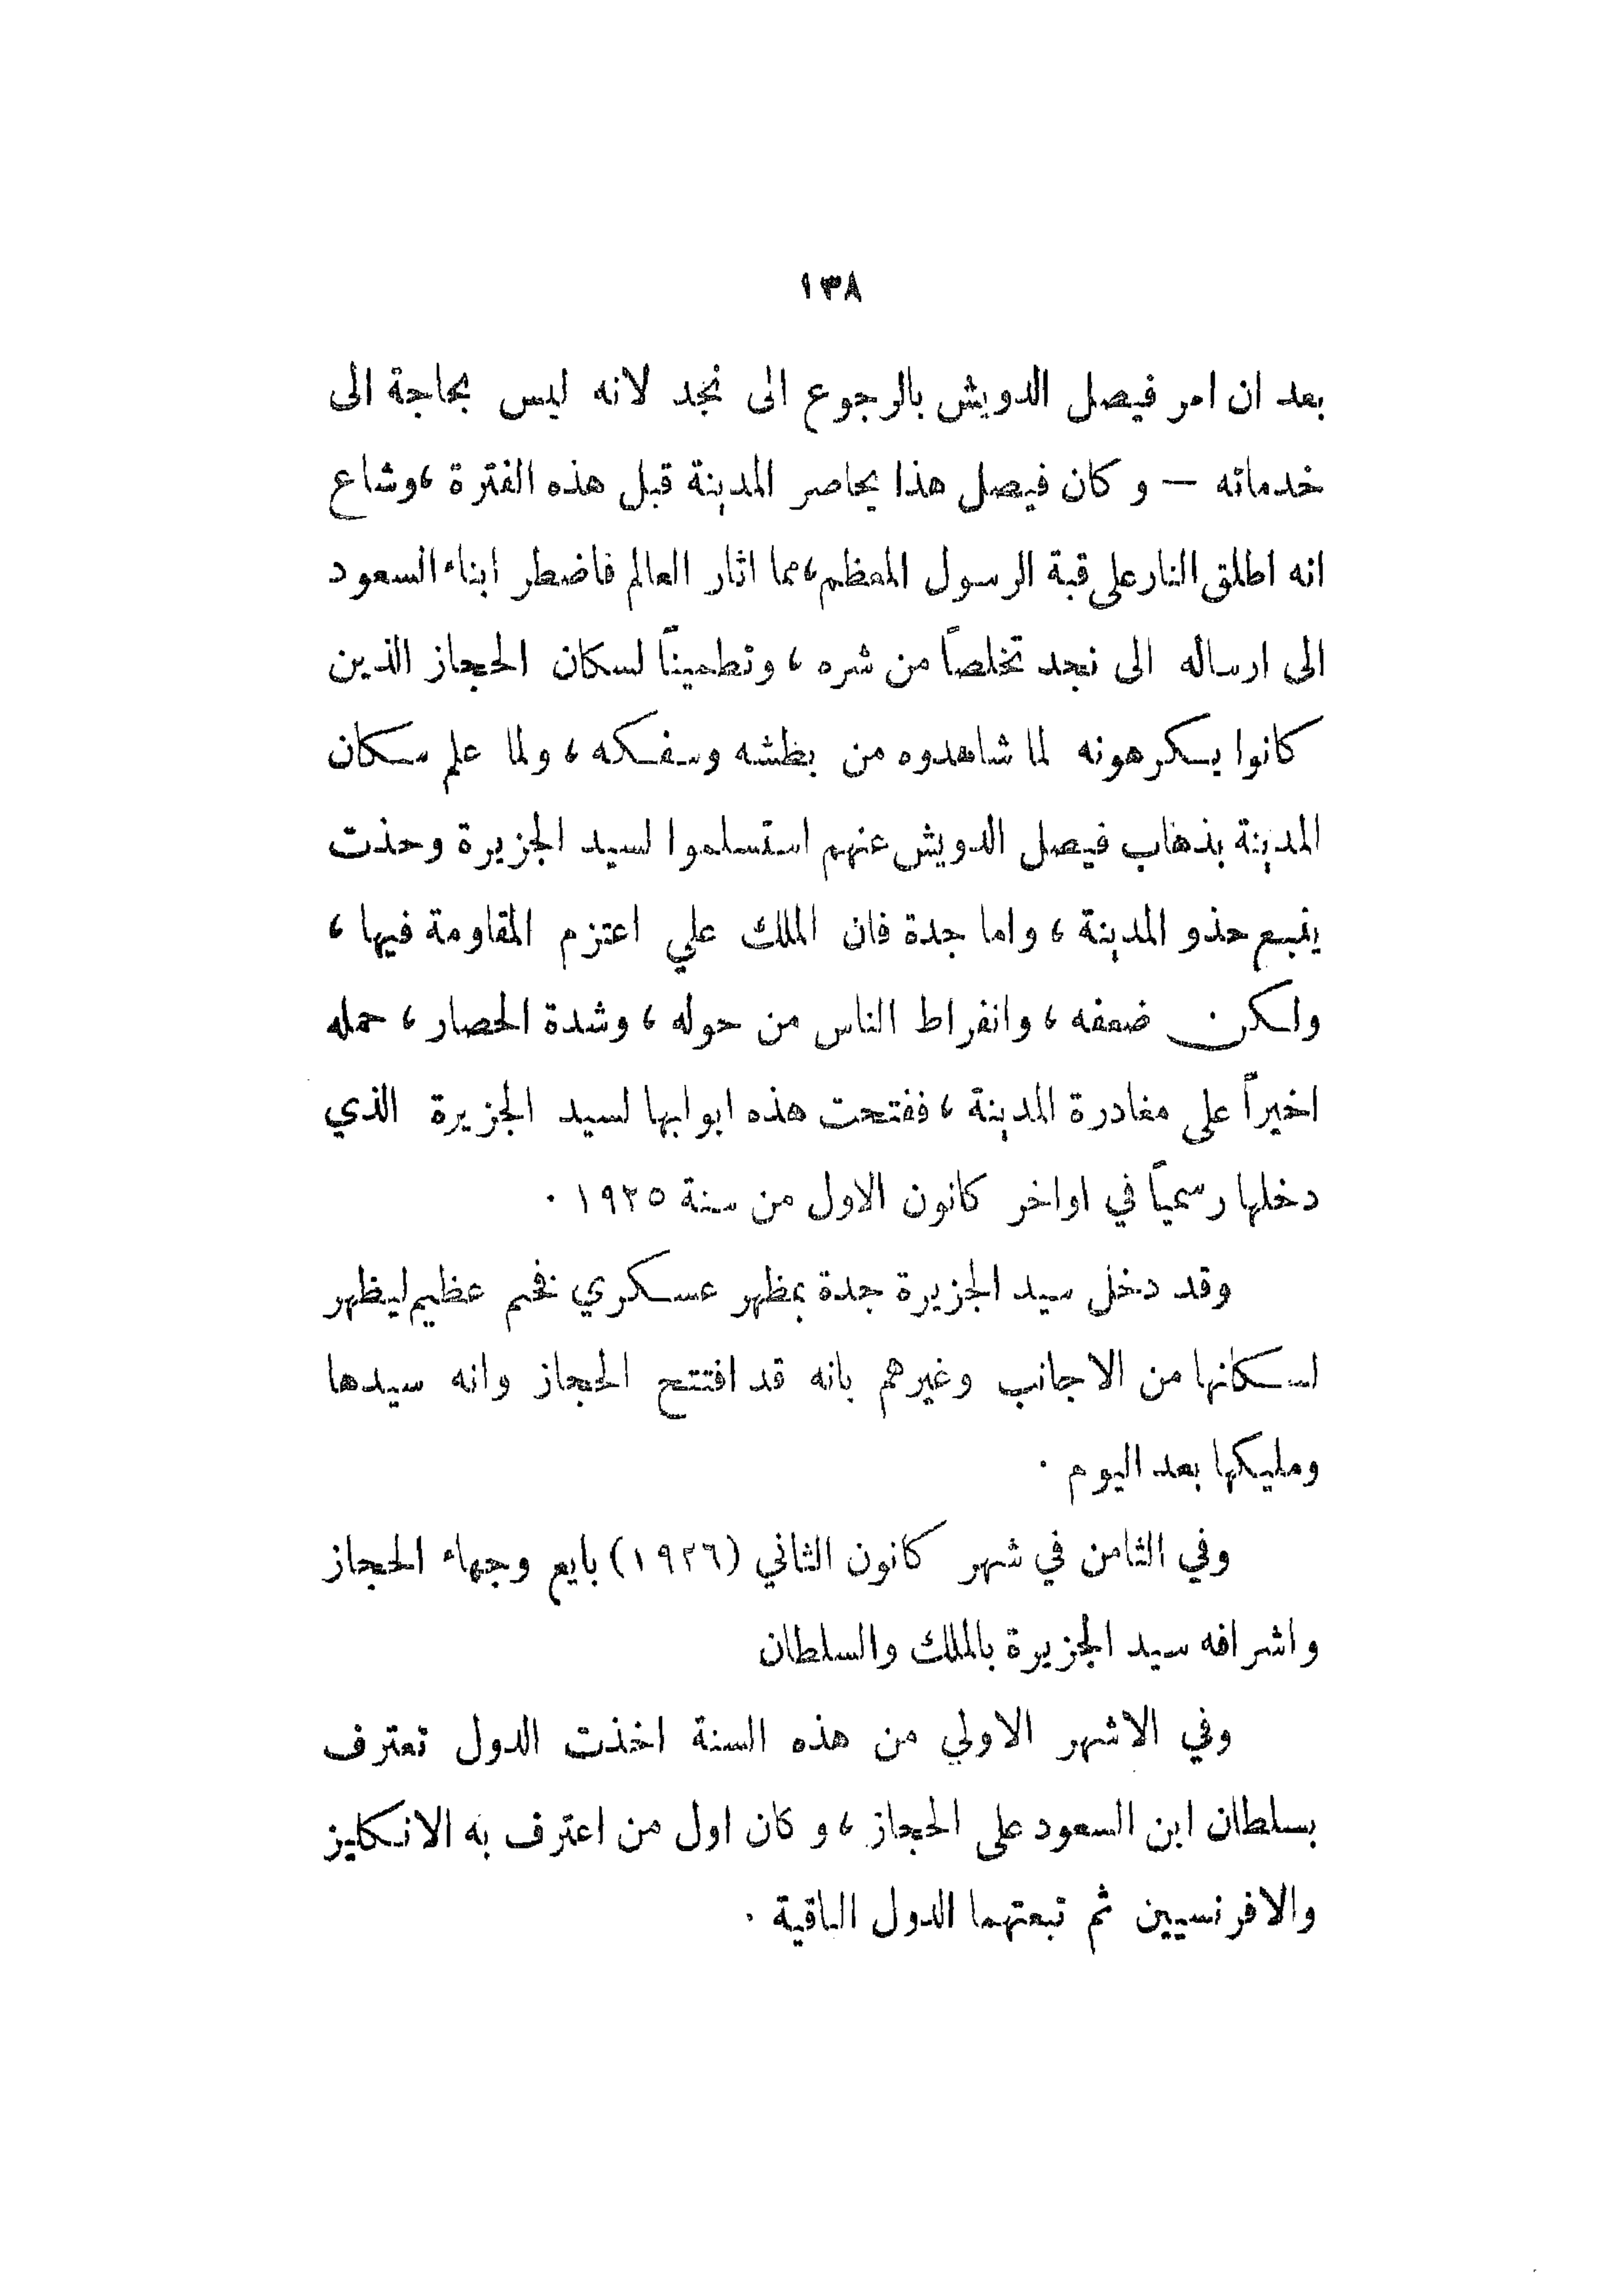 ١٣٨
بعد ان امر فيصل الدويش بالرجوع الى نجد لانه ليس بحاجة الى
خدماته — وكان فيصل هذا يحاصر المدينة قبل هذه الفترة ، وشاع
انه اطلق النار على قبة الرسول المعظم ، مما اثار العالم فاضطر ابناء السعود
الى ارساله الى نجد تخلصاً من شره ، وتطميناً لسكان الحجاز الذين
كانوا يكرهونه لما شاهدوه من بطشه وسفكه ، ولما علم سكان
المدينة بذهاب فيصل الدويش عنهم استسلموا لسيد الجزيرة وحذت
ينبع حذو المدينة ، واما جدة فان الملك علي اعتزم المقاومة فيها ،
ولكن ضعفه ، وانفراط الناس من حوله ، وشدة الحصار ، حمله
اخيراً على مغادرة المدينة ، ففتحت هذه ابوابها لسيد الجزيرة الذي
دخلها رسمياً في اواخر كانون الاول من سنة ١٩٢٥ .
وقد دخل سيد الجزيرة جدة بمظهر عسكري فخم عظيم ليظهر
لسكانها من الاجانب وغيرهم بانه قد افتتح الحجاز وانه سيدها
ومليكها بعد اليوم .
وفي الثامن في شهر كانون الثاني (١٩٢٦) بايع وجهاء الحجاز
واشرافه سيد الجزيرة بالملك والسلطان
وفي الاشهر الاولي من هذه السنة اخذت الدول تعترف
بسلطان ابن السعود على الحجاز ، وكان اول من اعترف به الانكليز
والافرنسيين ثم تبعتهما الدول الباقية .